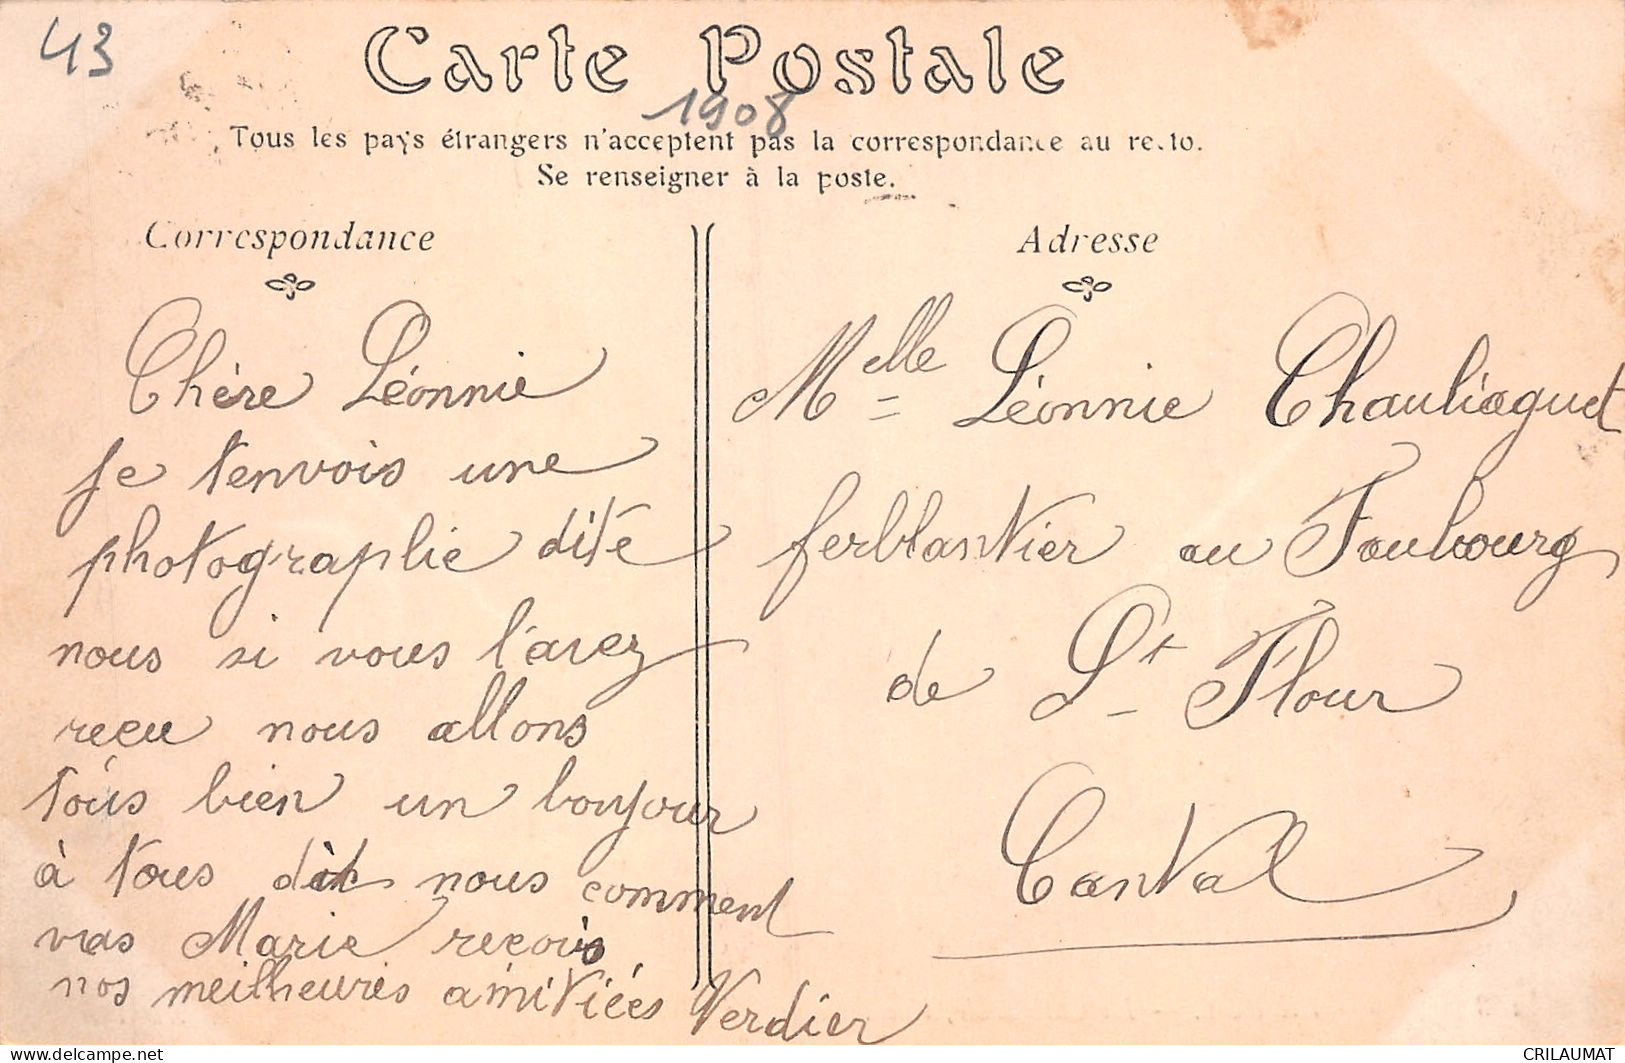 43
Carte Postale
1908
Tous les pays étrangers n'acceptent pas la correspondance au recto.
Se renseigner à la poste.
Correspondance
Chère Léonnie
je t'envois une
photographie dite
nous si vous l'avez
reçu nous allons
tous bien un bonjour
à tous dit nous comment
vas Marie reçois
nos meilheures amitiées Verdier
Adresse
Melle Léonnie Chauliaguet
ferblantier au Faubourg
de St Flour
Cantal
delcampe.net
CRILAUMAT